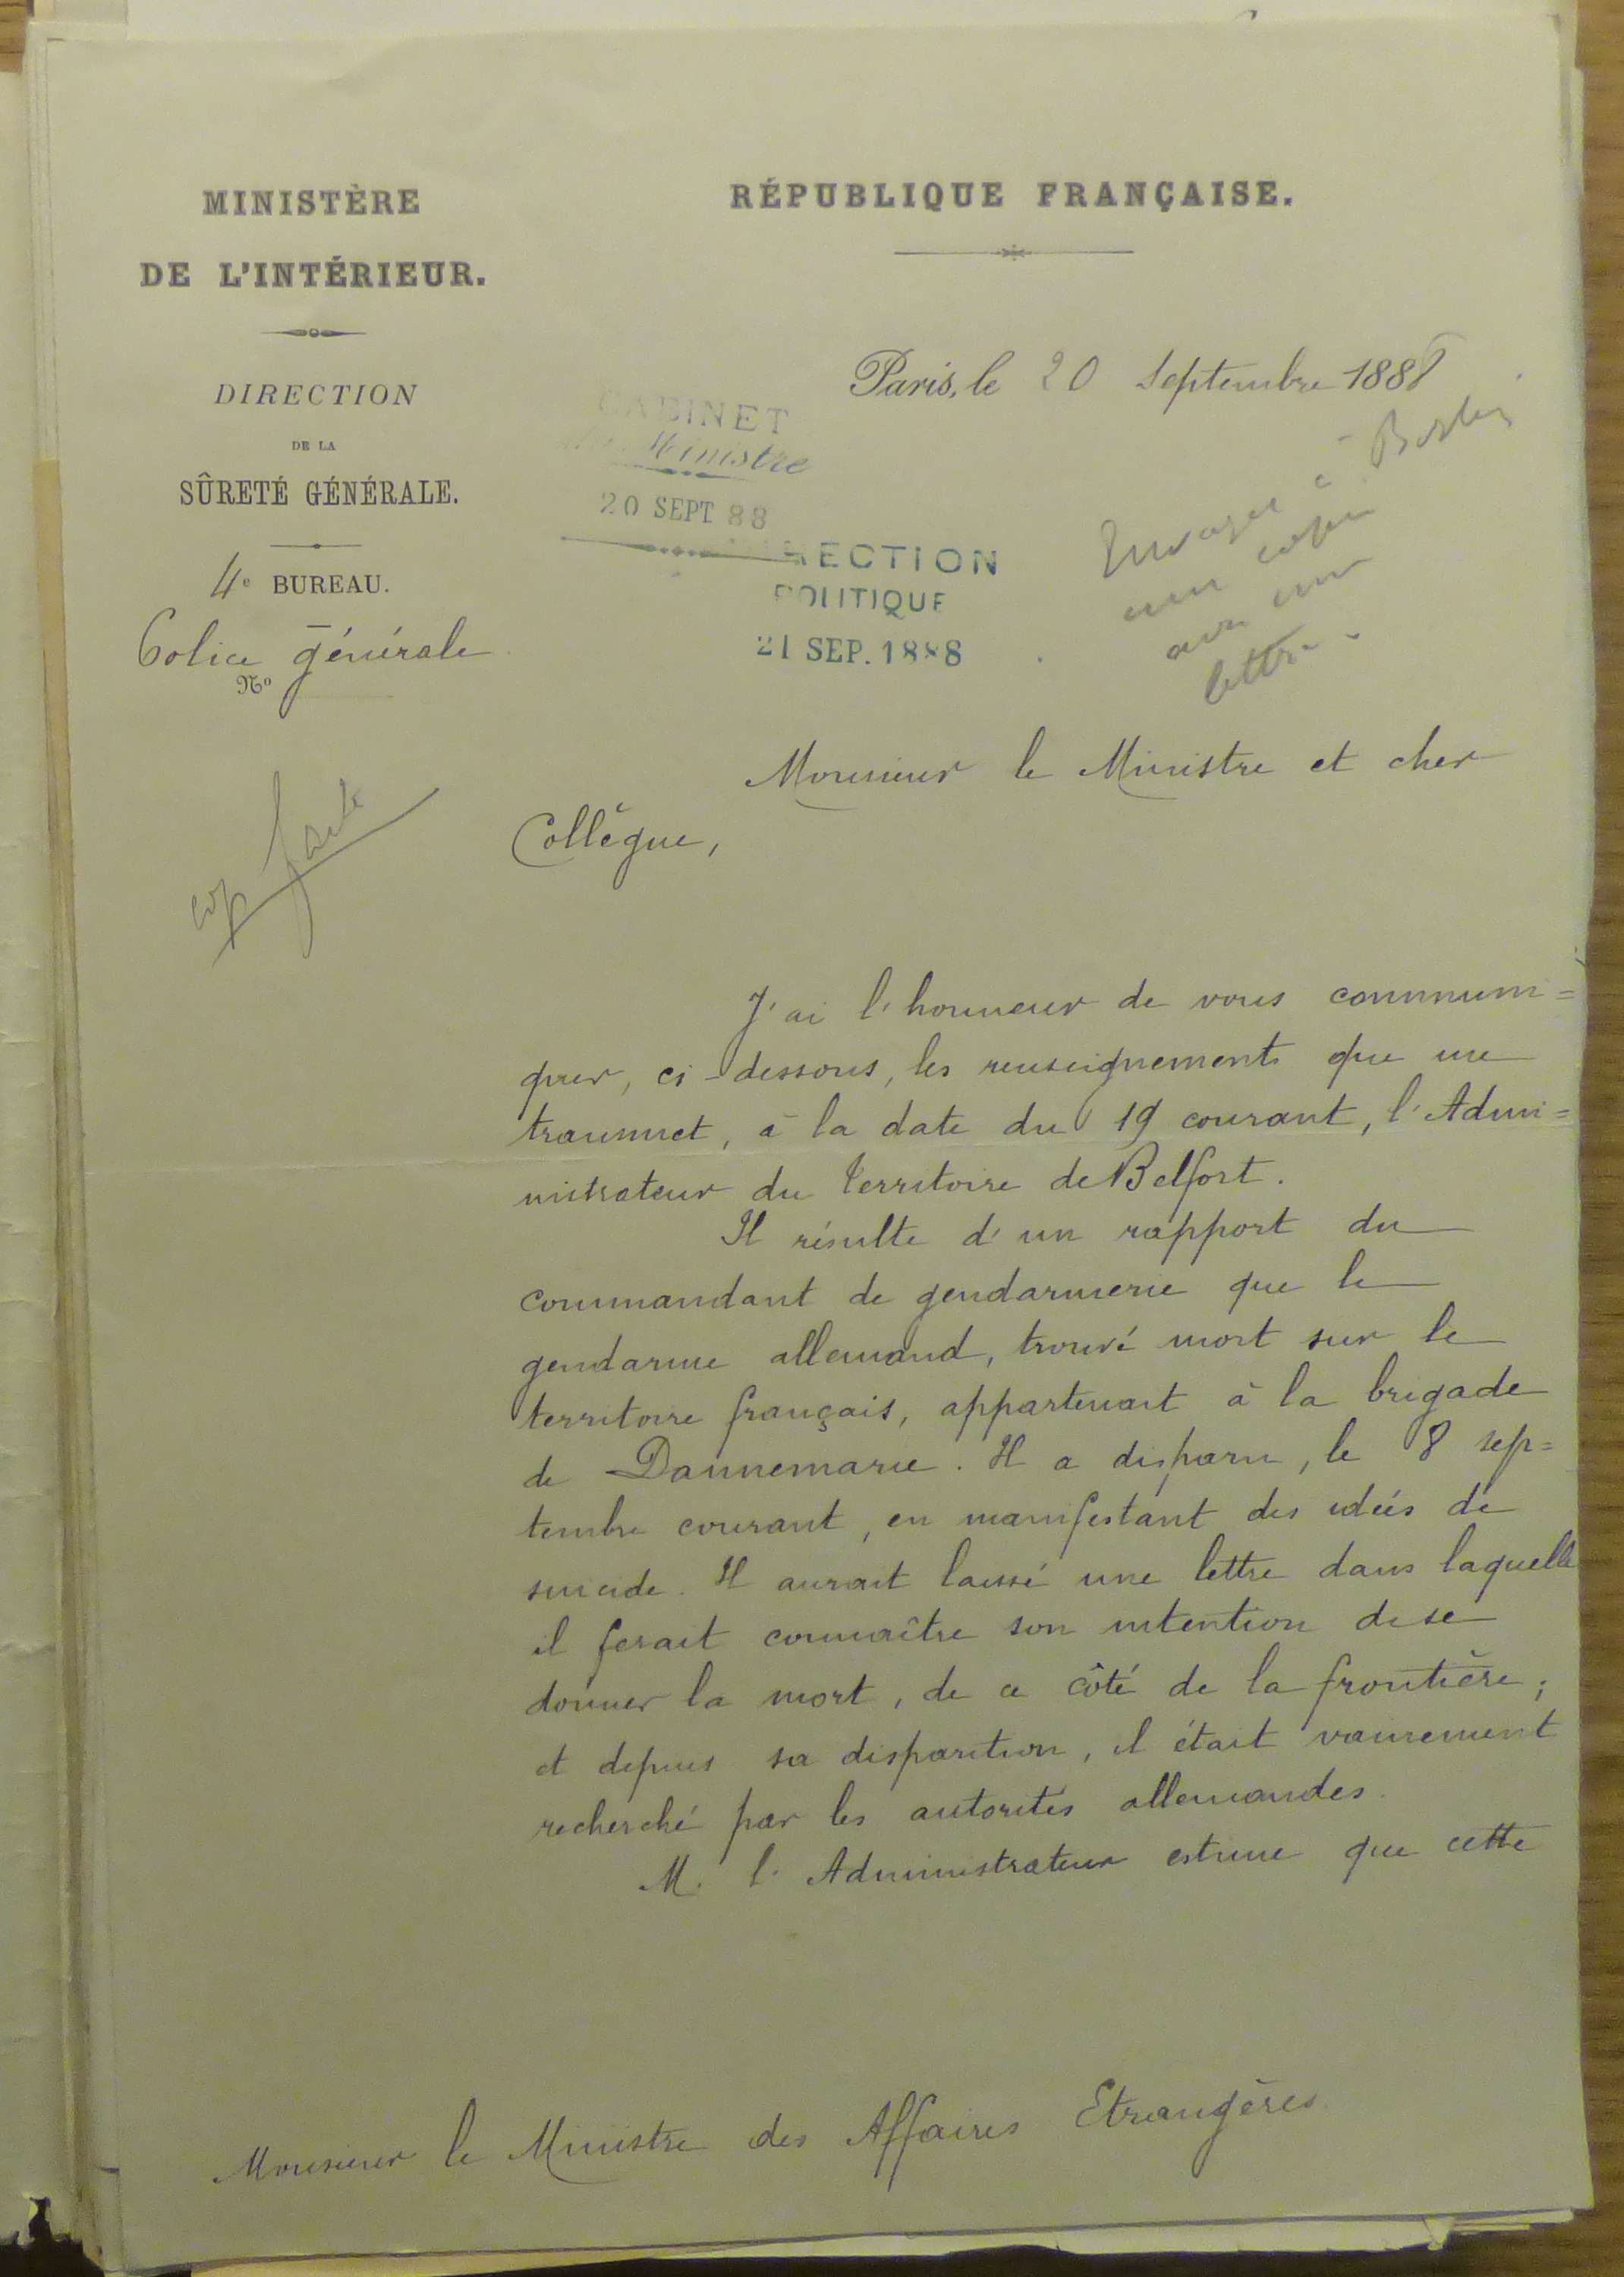 MINISTÈRE
DE L'INTÉRIEUR.
DIRECTION
DE LA
SÛRETÉ GÉNÉRALE.
4e BUREAU.
Police générale
No
cop faite
RÉPUBLIQUE FRANÇAISE.
Paris, le 20 Septembre 1888
CABINET
du Ministre
20 SEPT 88
DIRECTION
POLITIQUE
21 SEP. 1888
Envoyer à Berlin
une copie
avec une
lettre.
Monsieur le Ministre et cher
Collègue,
J'ai l'honneur de vous communi=
quer, ci-dessous, les renseignements que me
transmet, à la date du 19 courant, l'Admi=
nistrateur du Territoire de Belfort.
Il résulte d'un rapport du
commandant de gendarmerie que le
gendarme allemand, trouvé mort sur le
territoire français, appartenait à la brigade
de Dannemarie. Il a disparu, le 8 sep=
tembre courant, en manifestant des idées de
suicide. Il aurait laissé une lettre dans laquelle
il ferait connaître son intention de se
donner la mort, de ce côté de la frontière;
et depuis sa disparition, il était vainement
recherché par les autorités allemandes.
M. l'Administrateur estime que cette
Monsieur le Ministre des Affaires Etrangères